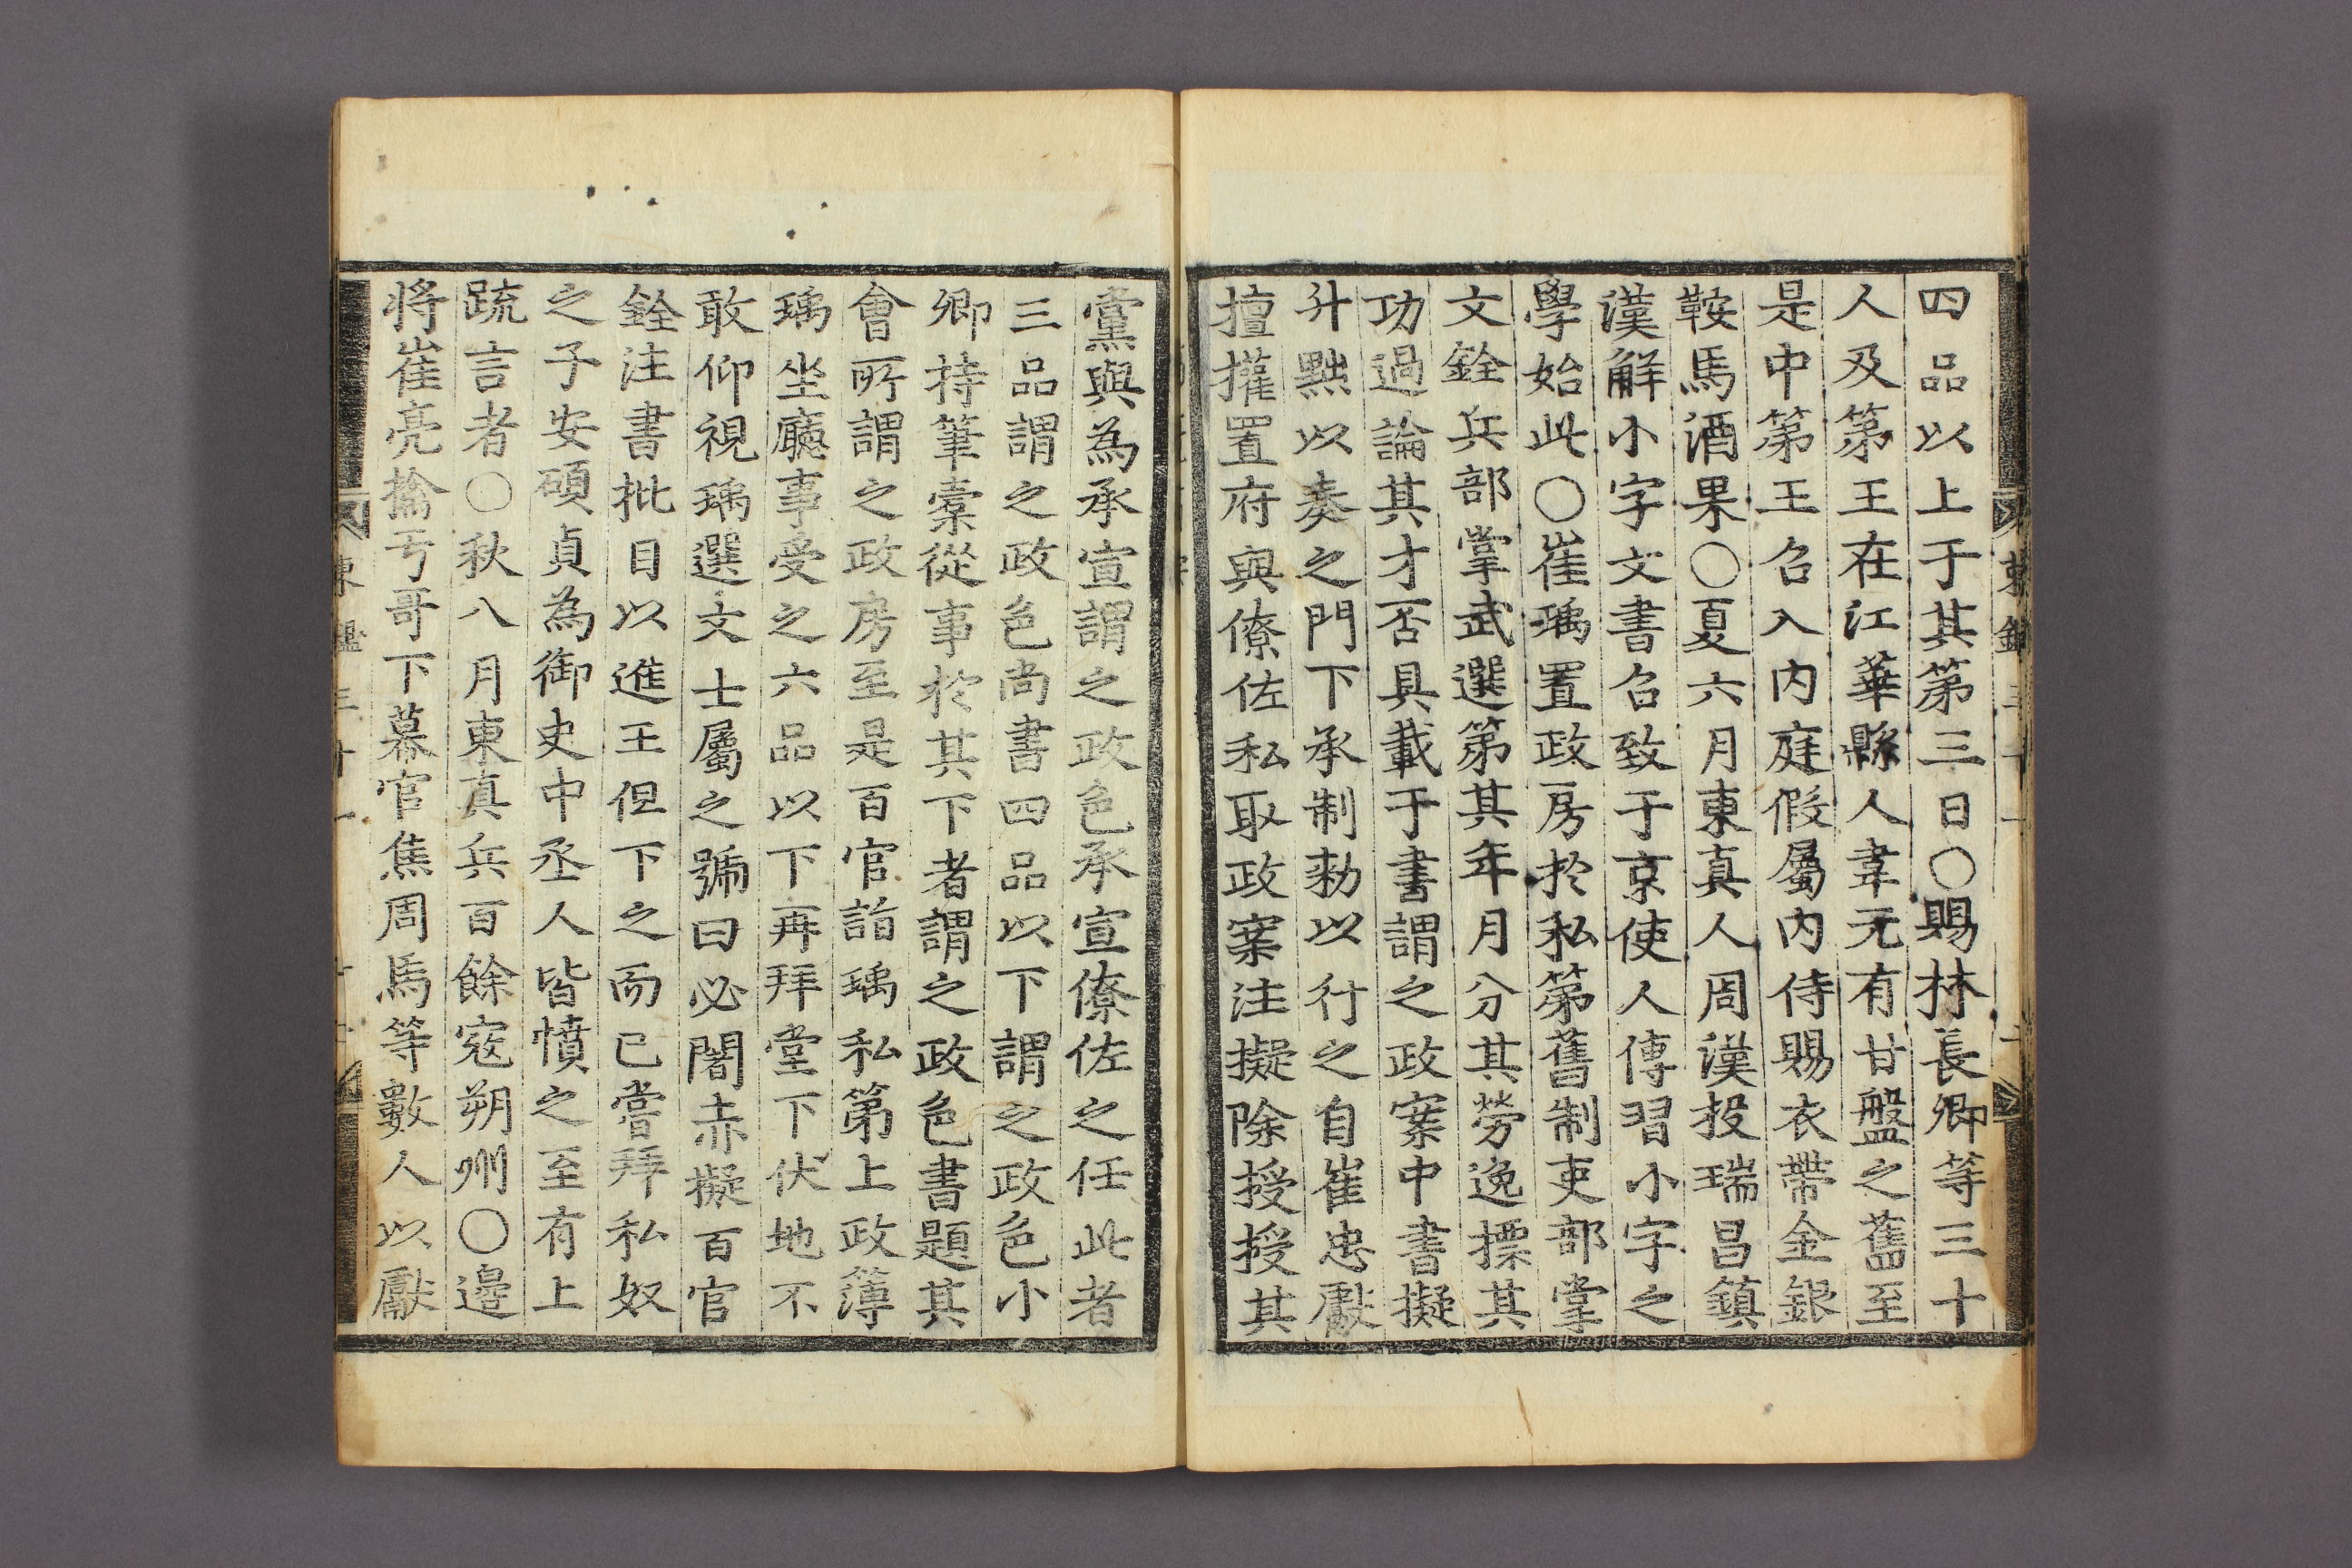 四品以上于其第三日○賜林長卿等三十
人及第王在江華縣人韋元有甘盤之舊至
是中第王召入內庭假屬內侍賜衣帶金銀
鞍馬酒果○夏六月東真人周漢投瑞昌鎮
漢解小字文書召致于京使人傳習小字之
學始此○崔瑀置政房於私第舊制吏部掌
文銓兵部掌武選第其年月分其勞逸摽其
功過論其才否具載于書謂之政案中書擬
升黜以奏之門下承制勑以行之自崔忠獻
擅權置府與僚佐私取政案注擬除授授其
黨與為承宣謂之政色承宣僚佐之任此者
三品謂之政色尚書四品以下謂之政色小
卿持筆橐從事於其下者謂之政色書題其
會所謂之政房至是百官詣瑀私第上政簿
瑀坐廳事受之六品以下再拜堂下伏地不
敢仰視瑀選文士屬之號曰必闍赤擬百官
銓注書批目以進王但下之而已嘗拜私奴
之子安碩貞為御史中丞人皆憤之至有上
疏言者○秋八月東真兵百餘寇朔州○邊
將崔亮擒亏哥下幕官焦周馬等數人以獻